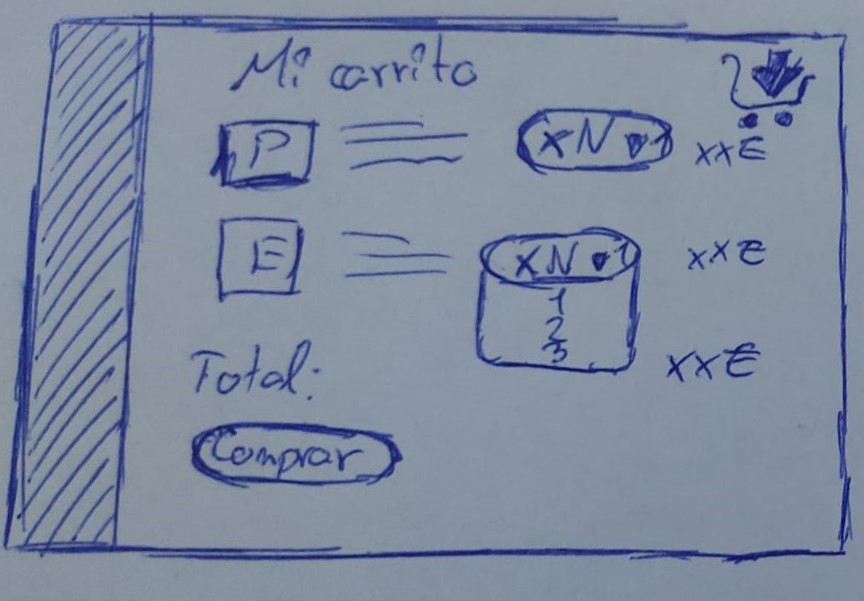 Mi carrito
P xN xx€
E xN xx€
1
2
3
Total: xx€
Comprar